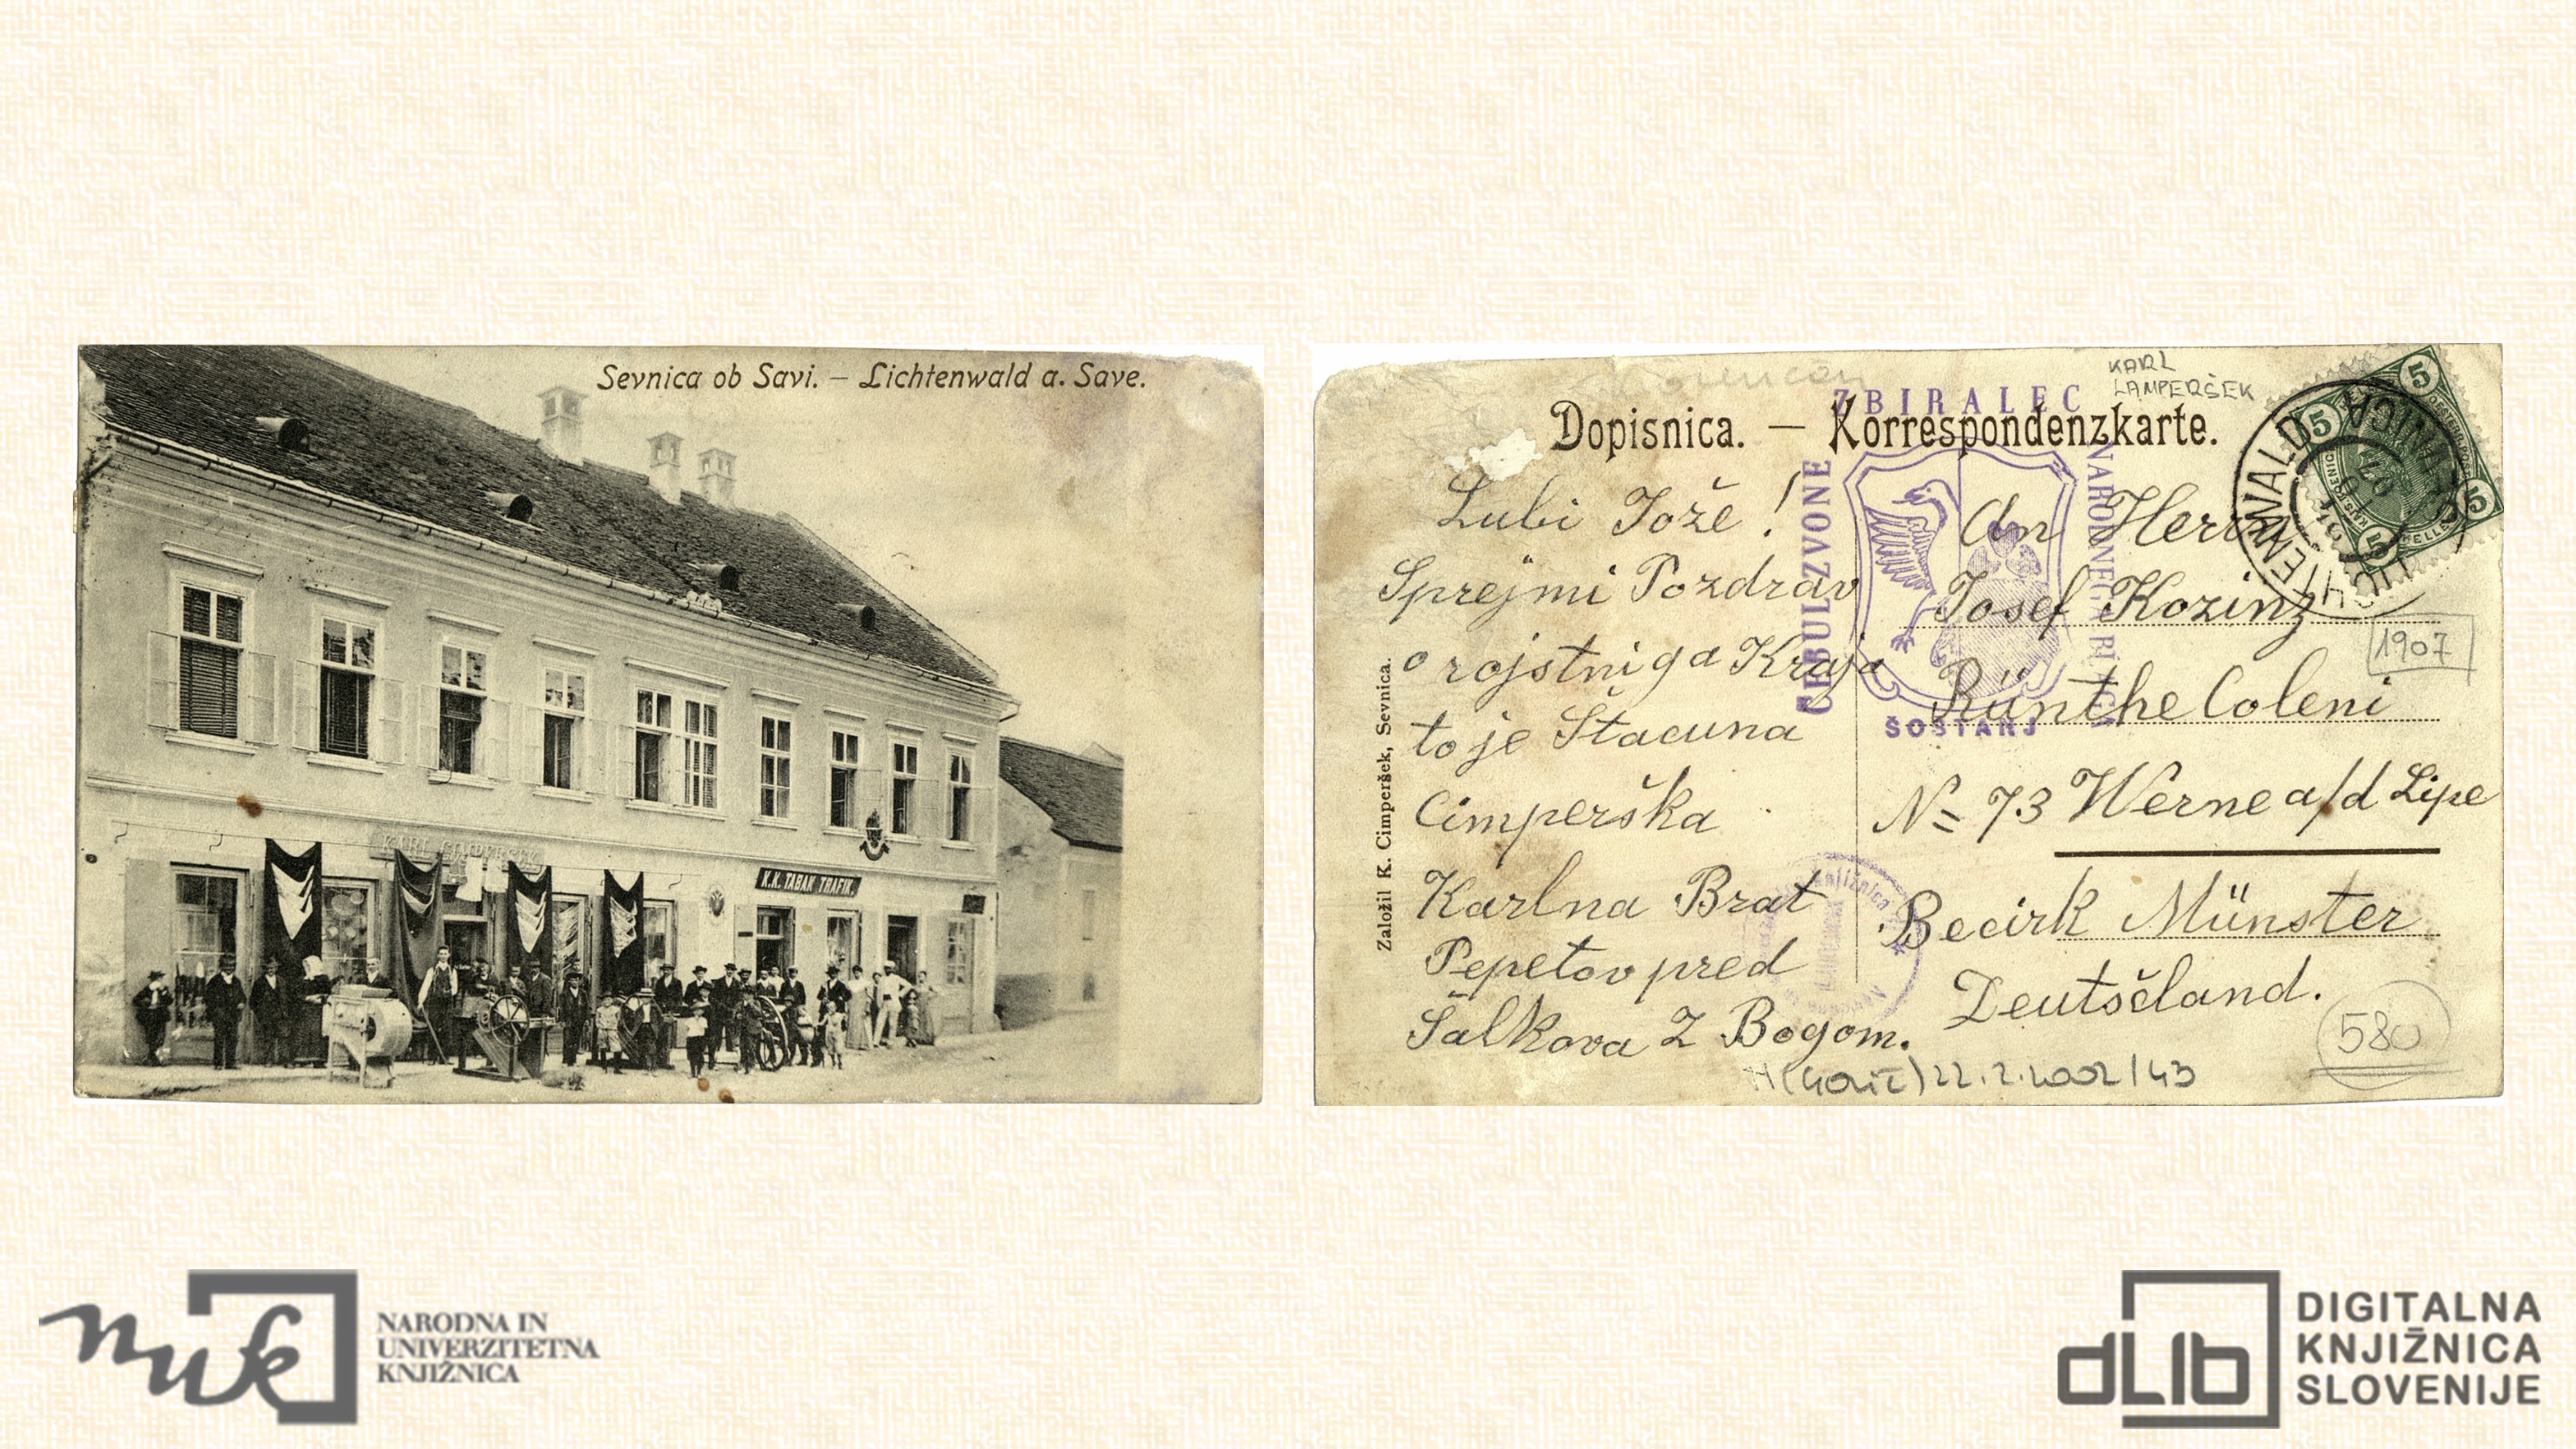 Sevnica ob Savi. — Lichtenwald a. Save.
K.K. TABAK TRAFIK.
KARL
LAMPERŠEK
ZBIRALEC
Dopisnica. — Korrespondenzkarte.
5
5
5
5
LICHTENWALD
SEVNICA
Lubi Jože!
Sprejmi Pozdrav
o rojstniga Kraja
to je Štacuna
Cimperška
Karlna Brat
Pepetov pred
Šalkova Z Bogom.
Založil K. Cimperšek, Sevnica.
CEBUL ZVONE
ŠOŠTANJ
An Herrn
Josef Kozinz
1907
Rünthe Coleni
N= 73 Werne a/d Lipe
Becirk Münster
Deutsčland.
580
22.2.2002/43
nuk
NARODNA IN
UNIVERZITETNA
KNJIŽNICA
dLib
DIGITALNA
KNJIŽNICA
SLOVENIJE